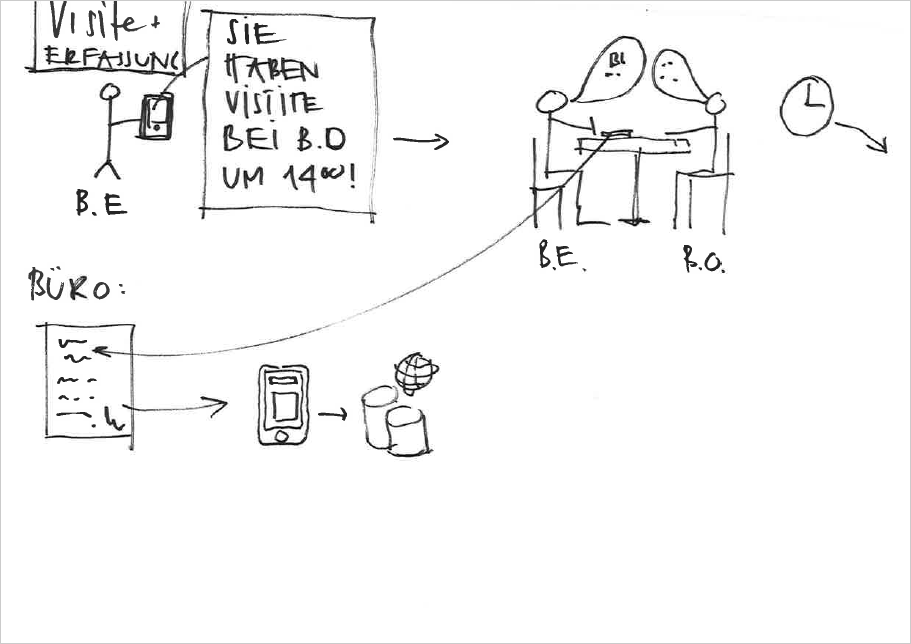 Visite +
ERFASSUNG
SIE
HABEN
VISTITE
BEI B.O
UM 14⁰⁰!
B.E
B.E.
B.O.
BÜRO: